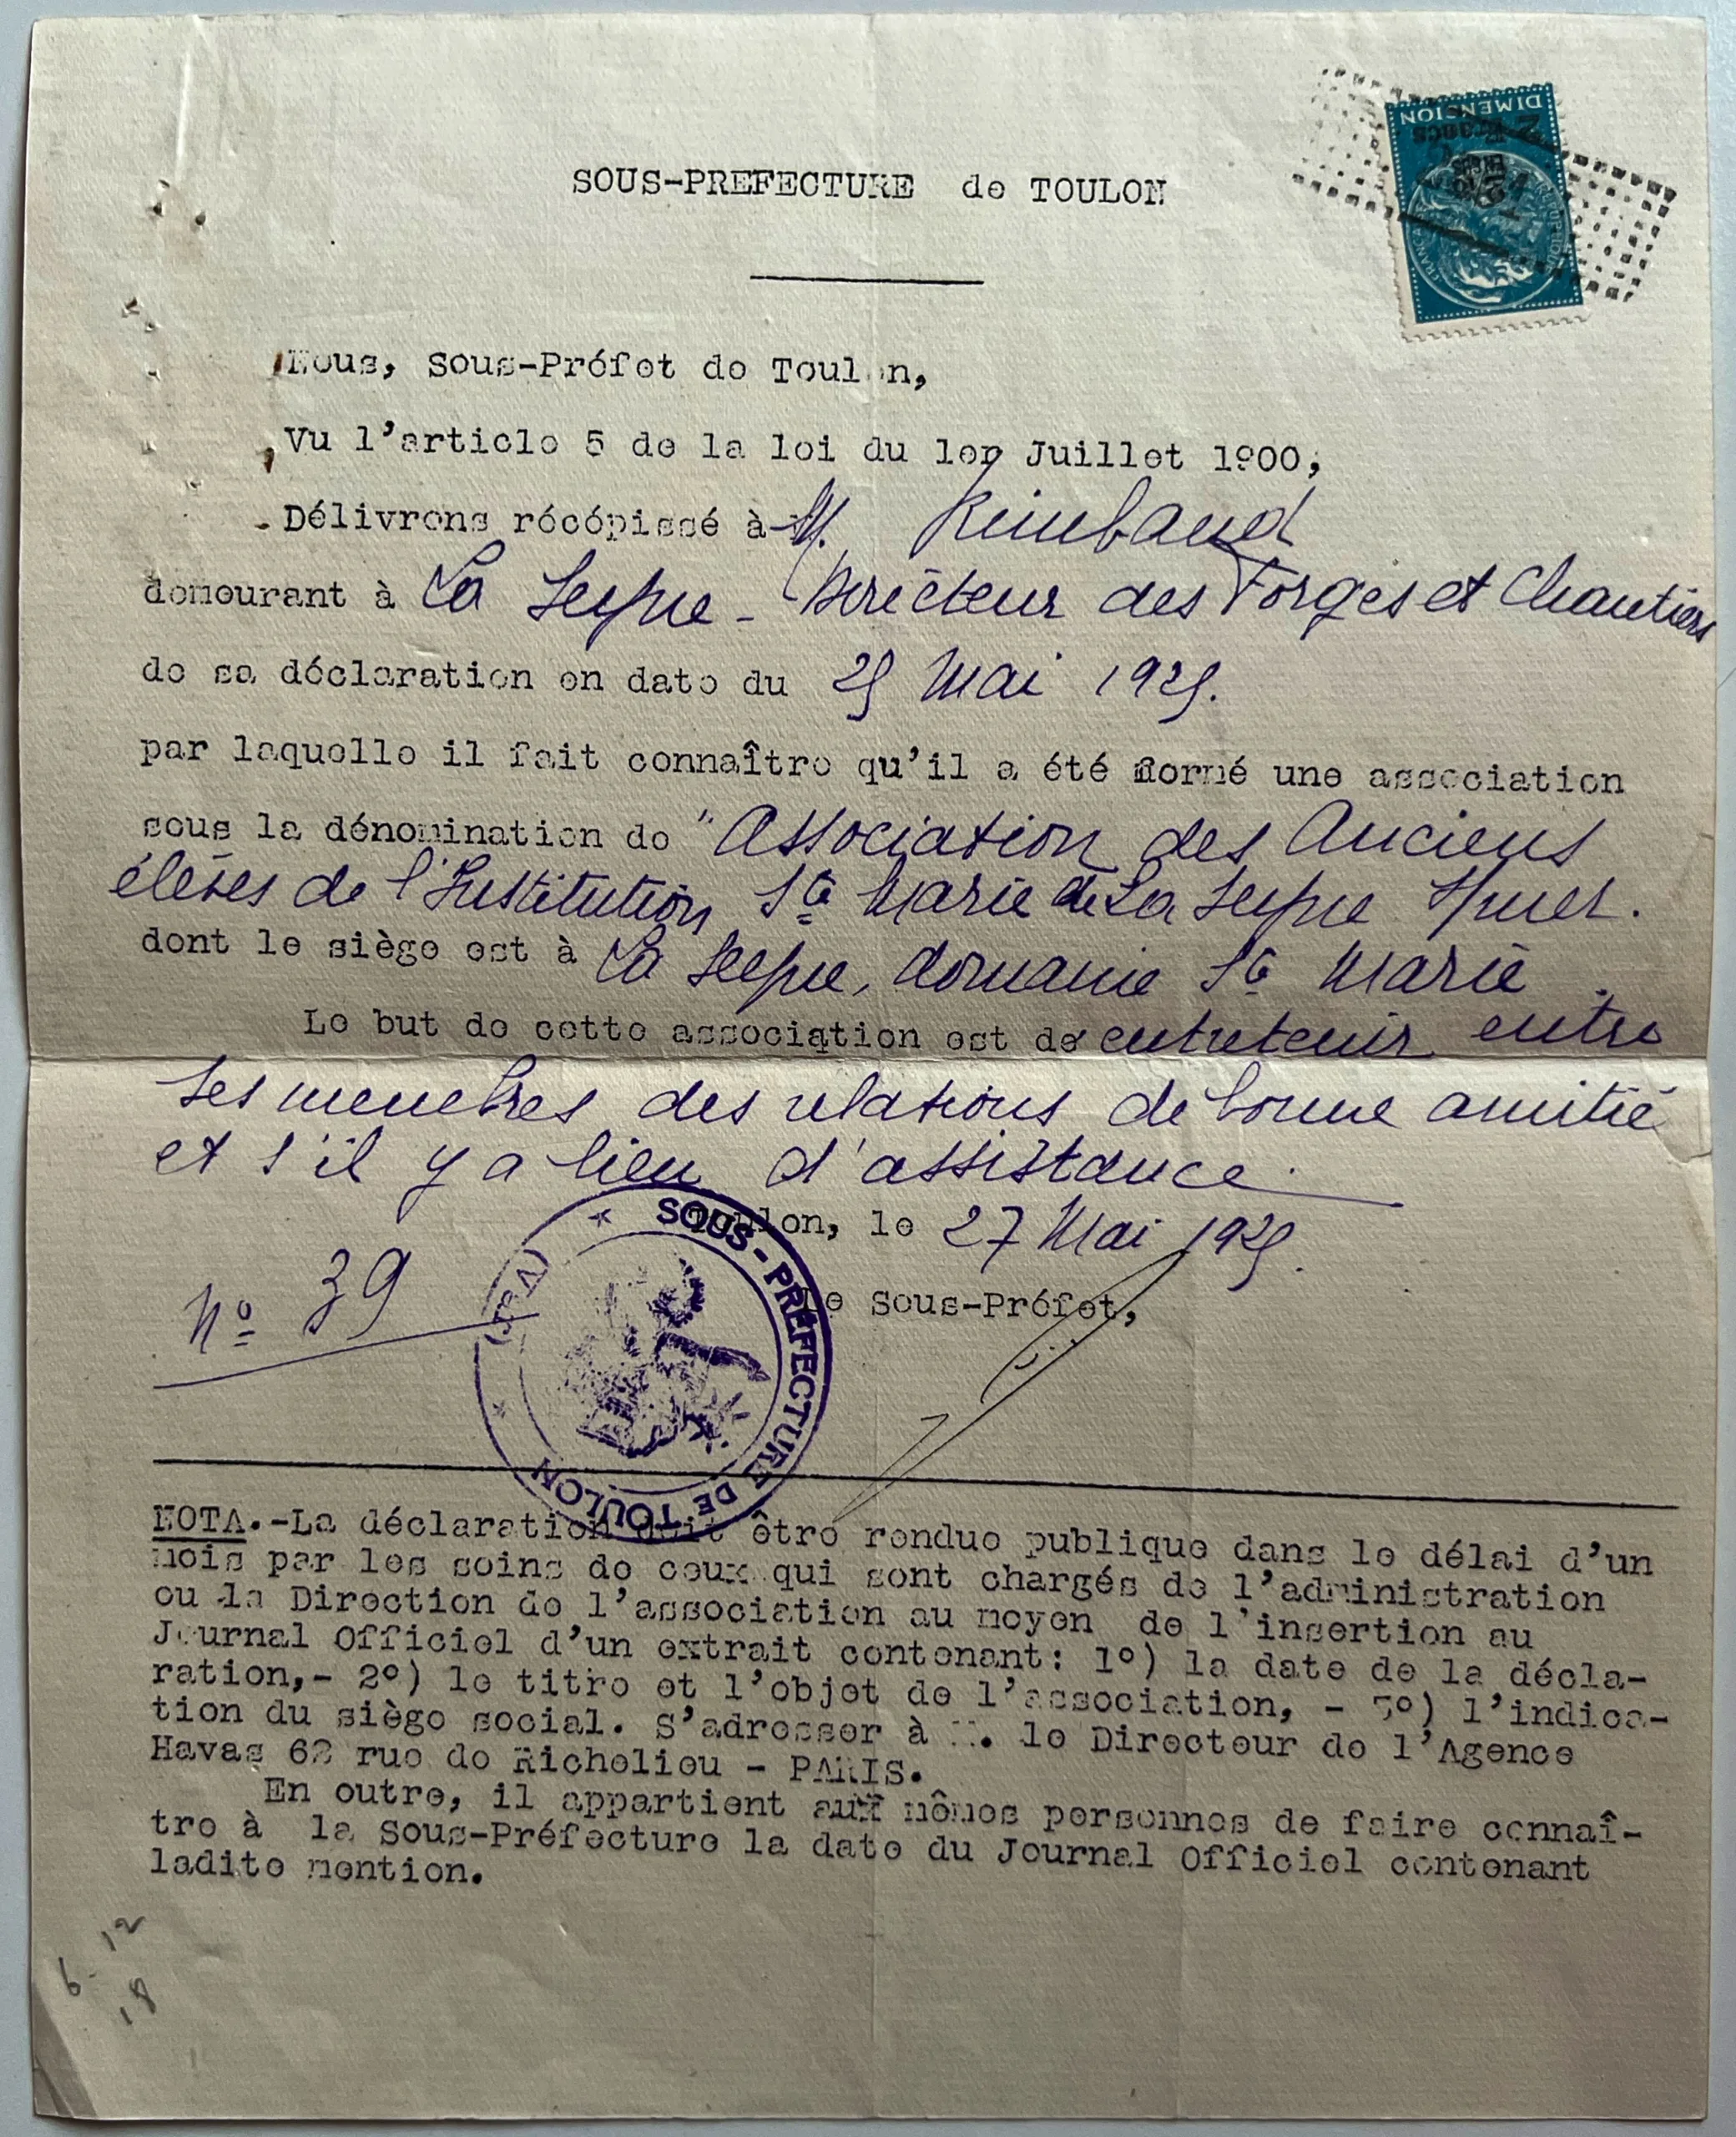 DIMENSION
2
Francs
SOUS-PREFECTURE de TOULON
Nous, Sous-Préfet de Toulon,
Vu l'article 5 de la loi du 1er Juillet 1900,
Délivrons récépissé à M. Rimbaud
demeurant à La Seyne - Directeur des Forges et Chantiers
de sa déclaration en date du 25 Mai 1925.
par laquelle il fait connaître qu'il a été formé une association
sous la dénomination de "Association des Anciens
élèves de l'Institution Ste Marie de La Seyne s/mer.
dont le siège est à La Seyne, domaine Ste Marie.
Le but de cette association est de entretenir entre
ses membres des relations de bonne amitié
et s'il y a lieu d'assistance.
Toulon, le 27 Mai 1925.
Le Sous-Préfet,
N° 39
SOUS-PRÉFECTURE DE TOULON
(VAR)
NOTA.-La déclaration doit être rendue publique dans le délai d'un
mois par les soins de ceux qui sont chargés de l'administration
ou la Direction de l'association au moyen de l'insertion au
Journal Officiel d'un extrait contenant: 1°) la date de la décla-
ration,- 2°) le titre et l'objet de l'association, - 3°) l'indica-
tion du siège social. S'adresser à M. le Directeur de l'Agence
Havas 62 rue de Richelieu - PARIS.
En outre, il appartient aux mêmes personnes de faire connaî-
tre à la Sous-Préfecture la date du Journal Officiel contenant
ladite mention.
6-12
18